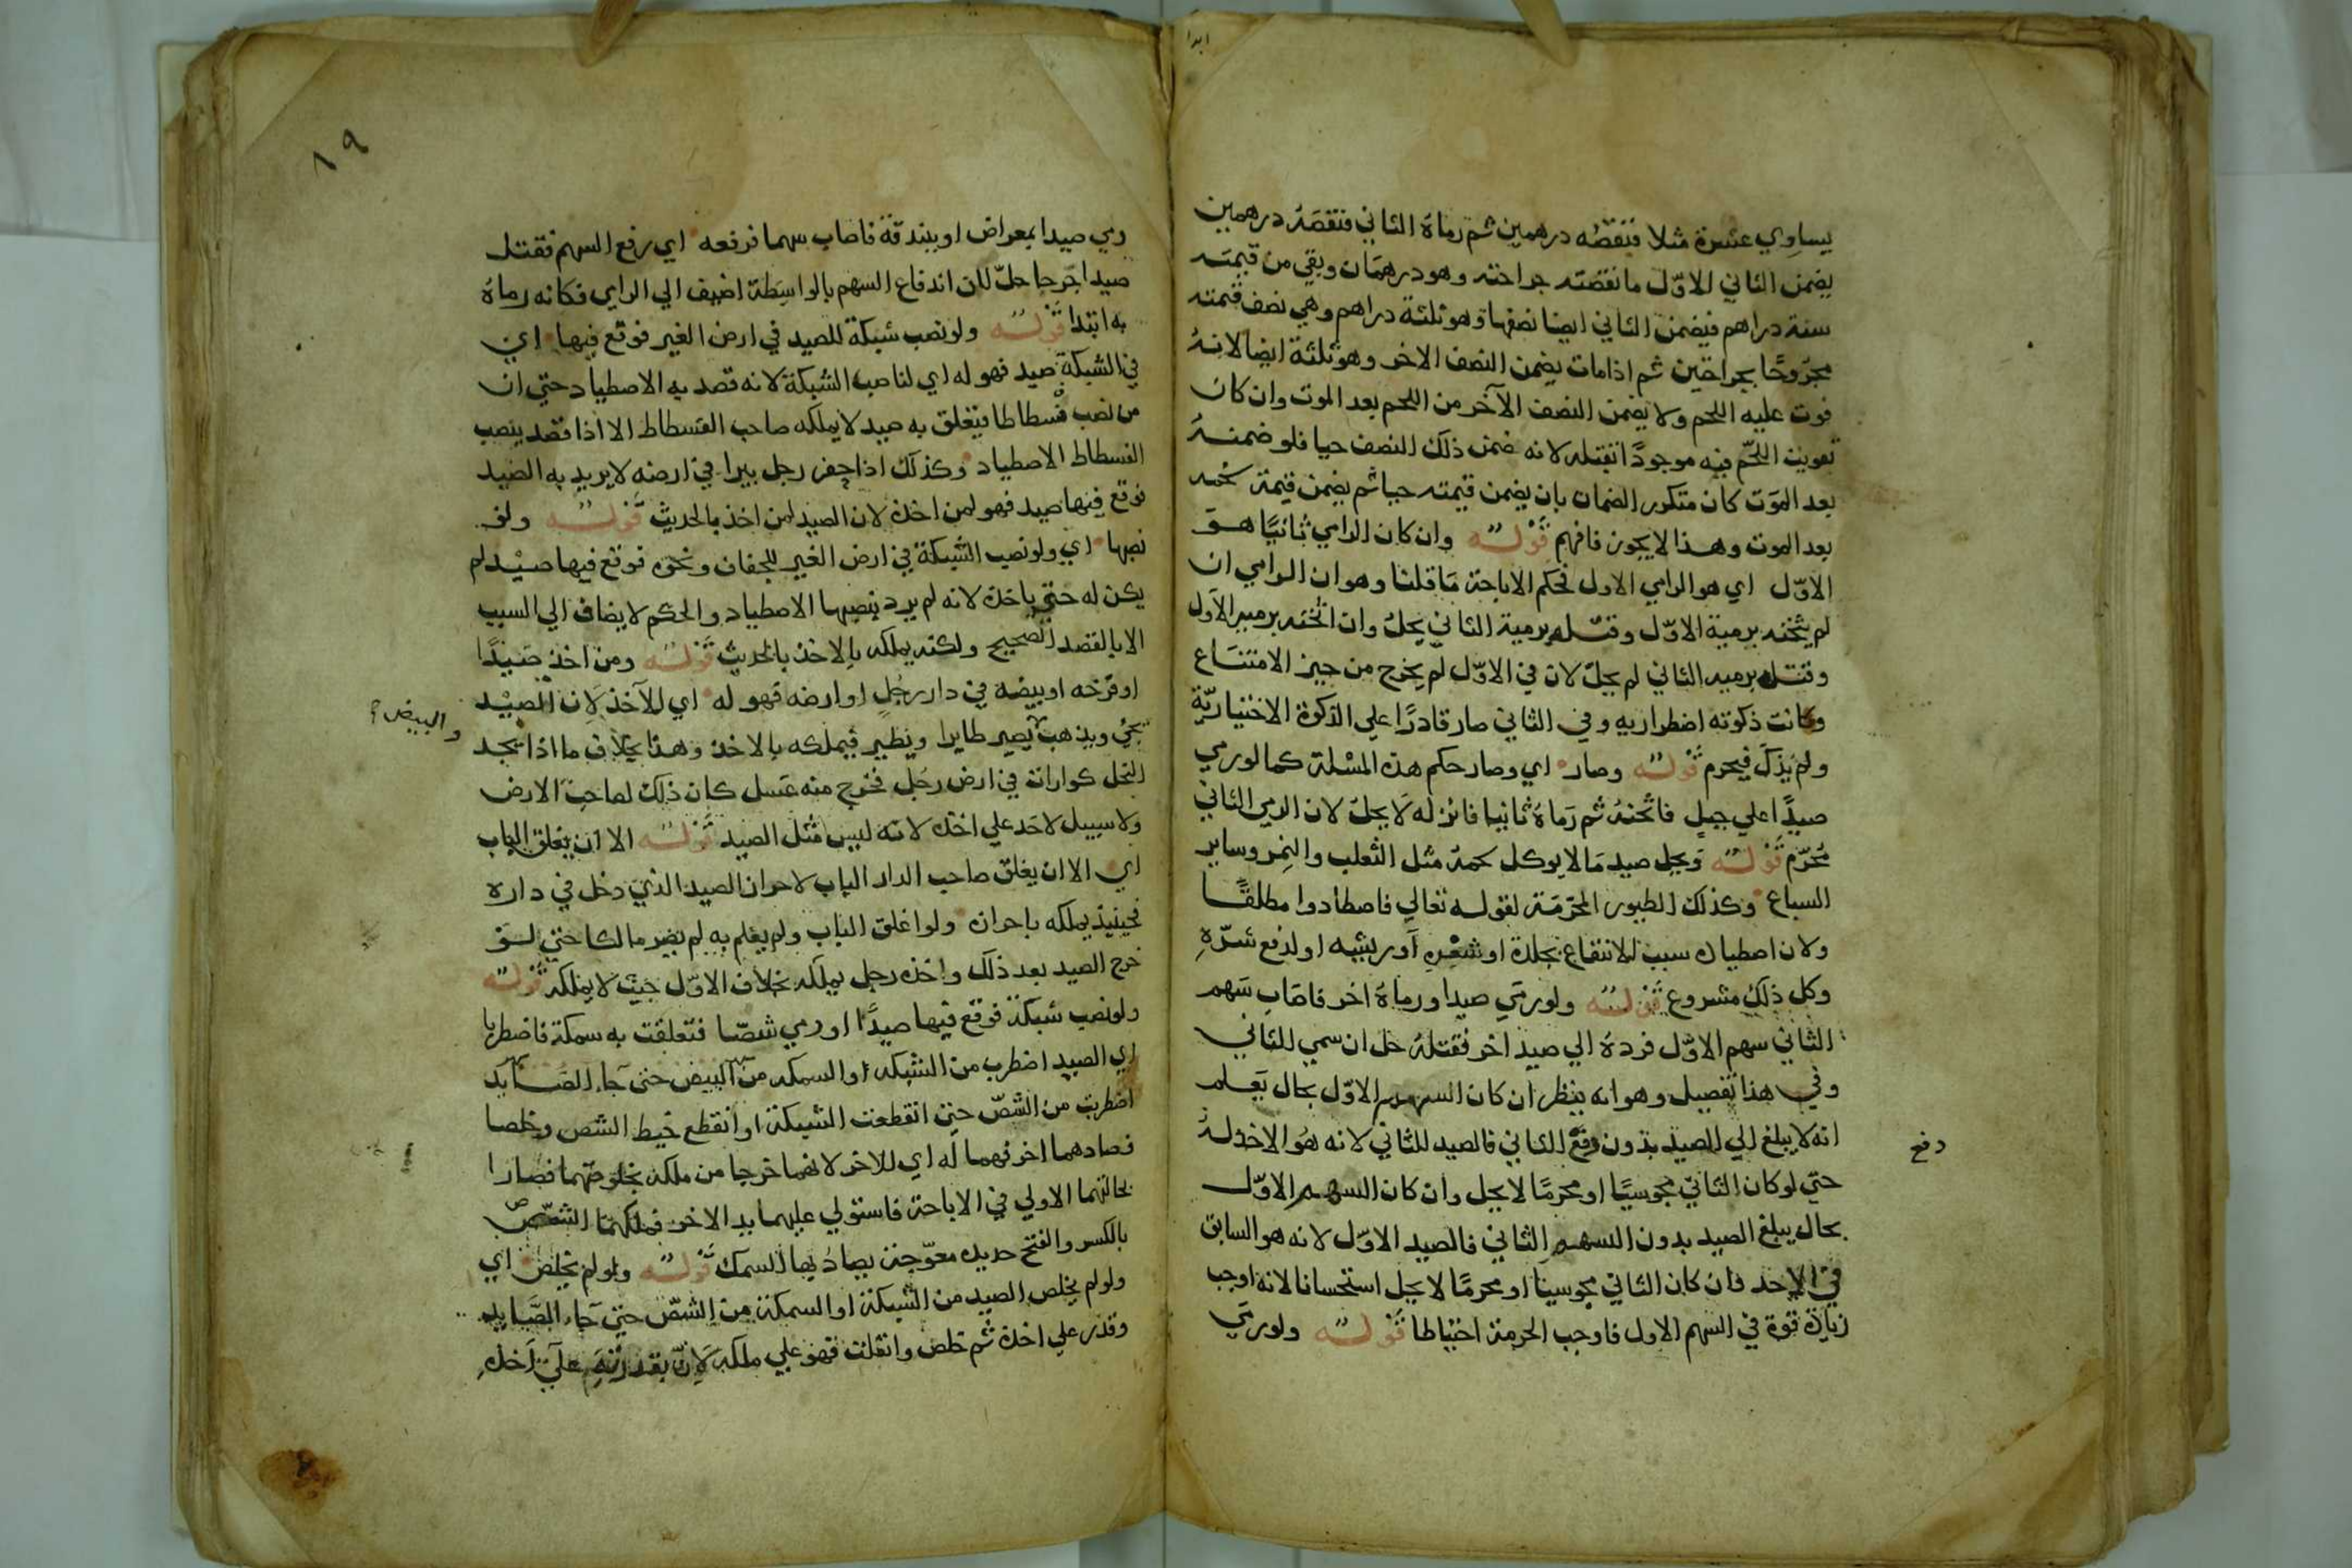 يساوي عشرة مثلا فنقصه درهمين ثم رماه الثاني فنقصه درهمين
يضمن الثاني للاوّل ما نقصته جراحته وهو درهمان وبقي من قيمته
ستة دراهم فيضمن الثاني ايضا نصفها وهو ثلثة دراهم وهي نصف قيمته
مجروحًا بجراحتين ثم اذا مات يضمن النصف الاخر وهو ثلثة ايضا لانهُ
فوت عليه اللحم ولا يضمن النصف الآخر من اللحم بعد الموت وان كان
تفويت اللحم فيه موجودًا بقتله لانه ضمن ذلك النصف حيا فلو ضمنهُ
بعد الموت كان متكرر الضمان بان يضمن قيمته حيا ثم يضمن قيمة لحمه
بعد الموت وهذا لا يجوز فافهم قوله وان كان الرامي ثانيًا هو
الاوّل اي هو الرامي الاول فحكم الاباحة ما قلنا وهو ان الرامي ان
لم يثخنه برمية الاوّل وقتله برمية الثاني يحلّ وان اثخنه برميه الاول
وقتله برميه الثاني لم يحلّ لان في الاوّل لم يخرج من حيز الامتناع
وكانت ذكوته اضطراريه وفي الثاني صار قادرًا علي الذكوة الاختياريّة
ولم يُذكّ فيحرم قوله وصار اي وصار حكم هذه المسْلة كما لو رمي
صيدًا على جبل فاثخنهُ ثم رماهُ ثانيا فانزله لا يحلّ لان الرمي الثاني
مُحرّم قوله ويحل صيد ما لا يوكل لحمهُ مثل الثعلب والنمر وساير
السباع وكذلك الطيور المحرّمَة لقوله تعالي فاصطادوا مطلقًا
ولان اصطياده سبب للانتفاع بجلده او شعْرِه أو ريشه او لدفع شرّهِ
وكل ذلك مشروع قوله ولو رمي صيدا ورماهُ اخر فاصَاب سَهم
الثاني سهم الاوّل فردهُ الي صيد اخر فقتلهُ حل ان سمي للثاني
وفي هذا تفصيل وهو انه ينظر ان كان السهم الاوّل بحال يَعلم
انه لا يبلغ الي الصيد بدون رفع الثاني فالصيد للثاني لانه هُو الاخذ لهُ
دفع
حتي لو كان الثاني مجوسيًا او محرمًا لا يحل وان كان السهم الاوّل
بحال يبلغ الصيد بدون السهم الثاني فالصيد للاوّل لانه هو السابق
في الاخذ فان كان الثاني مجوسيا او محرمًا لا يحل استحسانا لانه اوجب
زيادة قوة في السهم الاول فاوجب الحرمة احتياطا قوله ولو رمي
١٩
رمي صيدا بمعراض او ببندقة فاصاب سهما فرفعه اي رفع السهم فقتل
صيدا جَرحا حلّ لان اندفاع السهم بالواسِطة اضيف الي الرامي فكانه رماهُ
به ابتدا قوله ولو نصب شبكة للصيد في ارض الغير فوقع فيها اي
في الشبكة صيد فهو له اي لناصب الشبكة لانه قصد به الاصطياد حتي ان
من نصب فسطاطا فتعلق به صيد لا يملكه صاحب الفسطاط الا اذا قصد بنصب
الفسطاط الاصطياد وكذلك اذا حفر رجل بيرا في ارضه لا يريد به الصيد
فوقع فيها صيد فهو لمن اخذه لان الصيد لمن اخذ بالحديث قوله ولو
نصبها اي ولو نصب الشبكة في ارض الغير للجفاف ونحوه فوقع فيها صيْد لم
يكن له حتي ياخذه لانه لم يرد بنصبها الاصطياد والحكم لا يضاف الي السبب
الا بالقصد الصحيح ولكنه يملكه بالاخذ بالحديث قوله ومن اخذ صَيْدًا
او فرخه او بيضه في دار رجُلٍ او ارضه فهو له اي للآخذ لان الصيْد
والبيض
يجئ ويذهب يصير طايرا ويطير فيملكه بالاخذ وهذا بخلاف ما اذا اتخذ
النحل كوارات في ارض رجُل فخرج منه عَسل كان ذلك لصاحِب الارض
ولا سبيل لاحَد علي اخذه لانه ليس مثل الصيد قوله الا ان يغلق الباب
اي الا ان يغلق صاحب الدار الباب لاحراز الصيد الذي دخل في داره
فحينيذ يملكه باحرازه ولو اغلق الباب ولم يعلم به لم يصير مالكا حتي لو
خرج الصيد بعد ذلك واخذه رجل يملكه بخلاف الاوّل حيث لا يملكه قوله
ولو نصب شبكة فوقع فيها صيدًا او رمي شصّا فتعلقت به سمكة فاضطربا
اي الصيد اضطرب من الشبكه او السمكه من البيض حتى جاء الصايد
اضطربت من الشصّ حتي انقطعت الشبكة او انقطع خيط الشص وخلصا
فصادهما اخر فهما له اي للاخر لانهما خرجا من ملكه بخلوصهما فصارا
بحالتهما الاولي في الاباحة فاستولي عليهما يد الاخر فملكهما الشصّ
بالكسر والفتح حديده معوّجة يصادُ بها السمك قوله ولو لم يخلص اي
ولو لم يخلص الصيد من الشبكة او السمكة من الشصّ حتي جاء الصَّايد
وقدر علي اخذه ثم خلص وانفلت فهو علي ملكه لانّ بقدرته علي اخذه